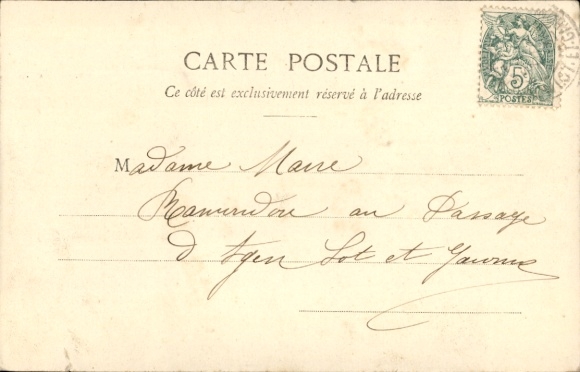 CARTE POSTALE
Ce côté est exclusivement réservé à l'adresse
5c
POSTES
Madame
au Passage
d'Agen Lot et Garonne